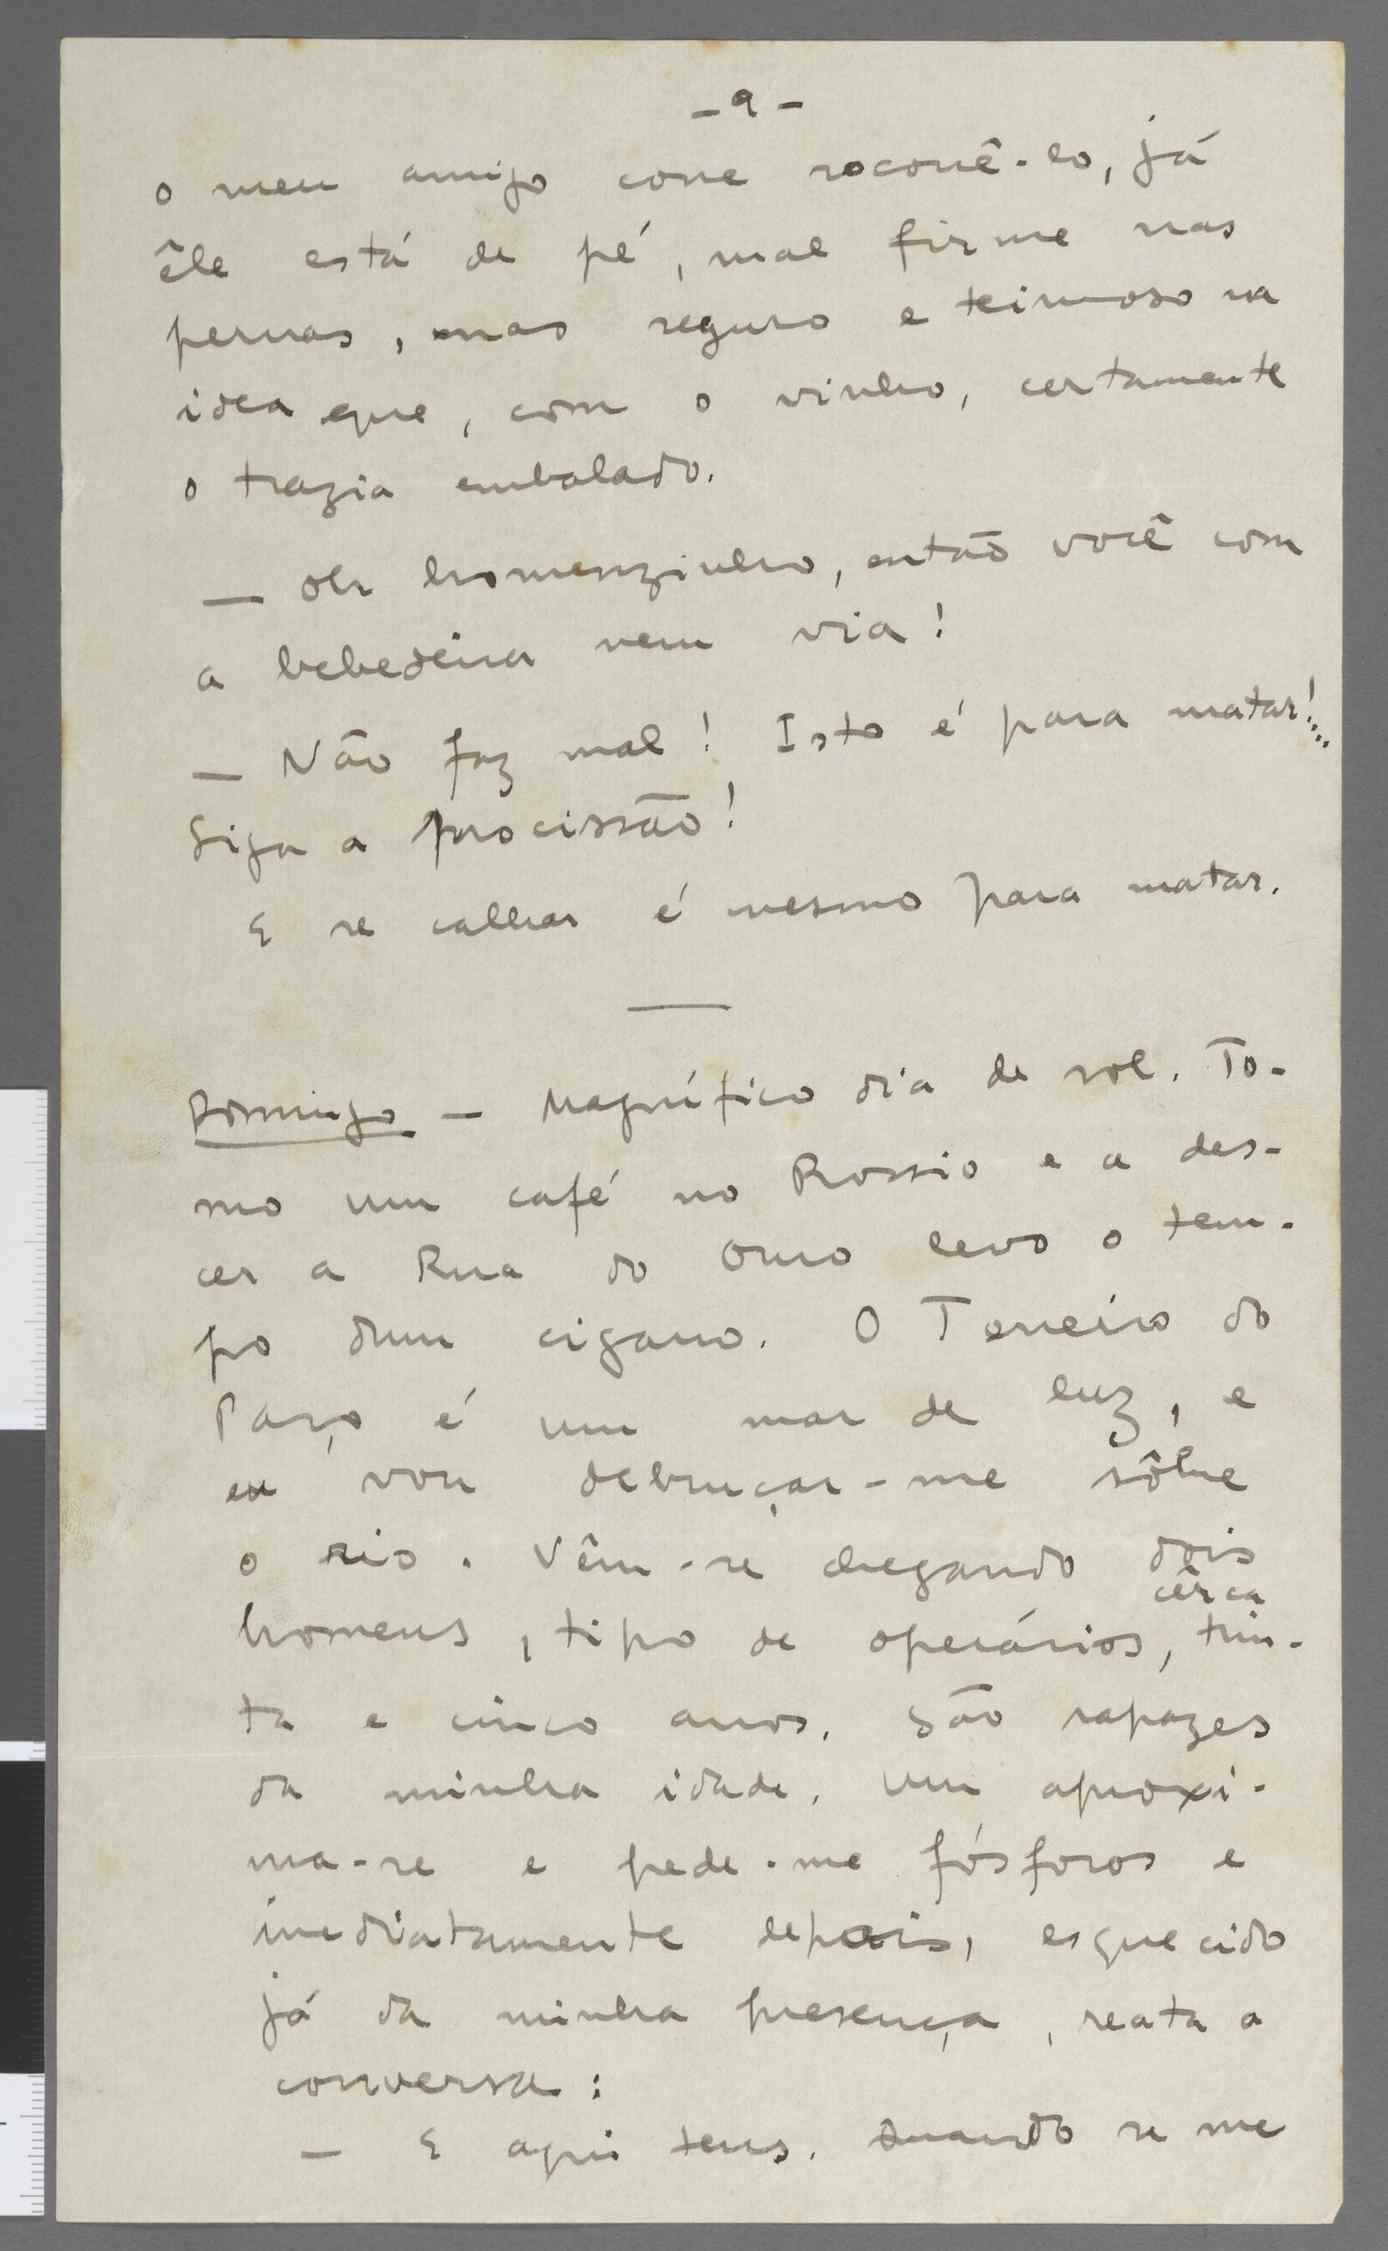 - 9 -
o meu amigo corre socorrê-lo, já
êle está de pé, mal firme nas
pernas, mas seguro e teimoso na
idea que, com o vinho, certamente
o trazia embalado.
— Oh homenzinho, então você com
a bebedeira nem via!
— Não faz mal! Isto é para matar!...
Siga a procissão!
E se calhar é mesmo para matar.
Domingo — Magnífico dia de sol. To-
mo um café no Rossio e a des-
cer a Rua do Ouro levo o tem-
po dum cigarro. O Terreiro do
Paço é um mar de luz, e
eu vou debruçar-me sôbre
o rio. Vêm-se chegando dois
cêrca
homens, tipo de operários, trin-
ta e cinco anos. São rapazes
da minha idade. Um aproxi-
ma-se e pede-me fósforos e
imediatamente depois, esquecido
já da minha presença, reata a
conversa:
— E aqui tens. Quando se me